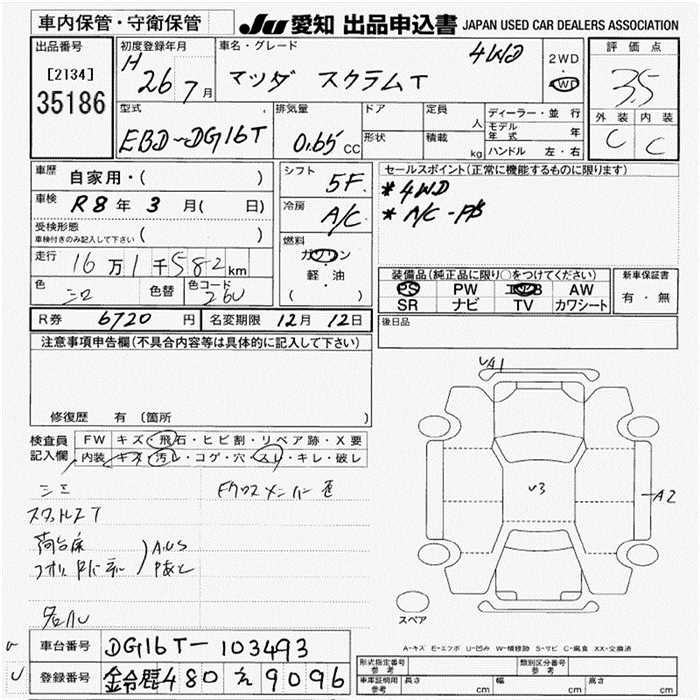 車内保管・守衛保管
JU 愛知 出品申込書 JAPAN USED CAR DEALERS ASSOCIATION
出品番号
[2134]
35186
初度登録年月
H 26 7月
車名・グレード
マツダ スクラムT 4WD
2WD
4WD
評価点
3.5
外装 内装
C C
型式
EBD-DG16T
排気量
0.65 CC
ドア
形状
定員
人
積載
kg
ディーラー・並行
モデル年式 年
ハンドル 左・右
車歴
自家用・( )
車検
R8年 3月( 日)
受検形態
車検付きのみ記入して下さい ( )
走行
16万1千582km
色
シロ
色替
色コード
26U
シフト
5F
冷房
A/C
燃料
ガソリン
・
軽・油
( )
セールスポイント(正常に機能するものに限ります)
*4WD
*A/C-P/S
装備品(純正品に限り○をつけてください)
PS PW エアB AW
SR ナビ TV カワシート
新車保証書
有・無
R券 6720円 名変期限 12月12日
後日品
注意事項申告欄(不具合内容等は具体的に記入して下さい)
修復歴 有 〔箇所 〕
検査員
記入欄
FW キズ・飛石・ヒビ割・リペア跡・X要
内装 キズ・汚レ・コゲ・穴・スレ・キレ・破レ
荷台床
A1
3
A2
スペア
A-キズ E-エクボ U-凹み W-補修跡 S-サビ C-腐食 XX-交換済
車台番号 DG16T-103493
登録番号 鈴鹿480 え 9096
形式指定番号
参考
類別区分番号
参考
車庫証明用
参考
長さ cm 幅 cm 高さ cm